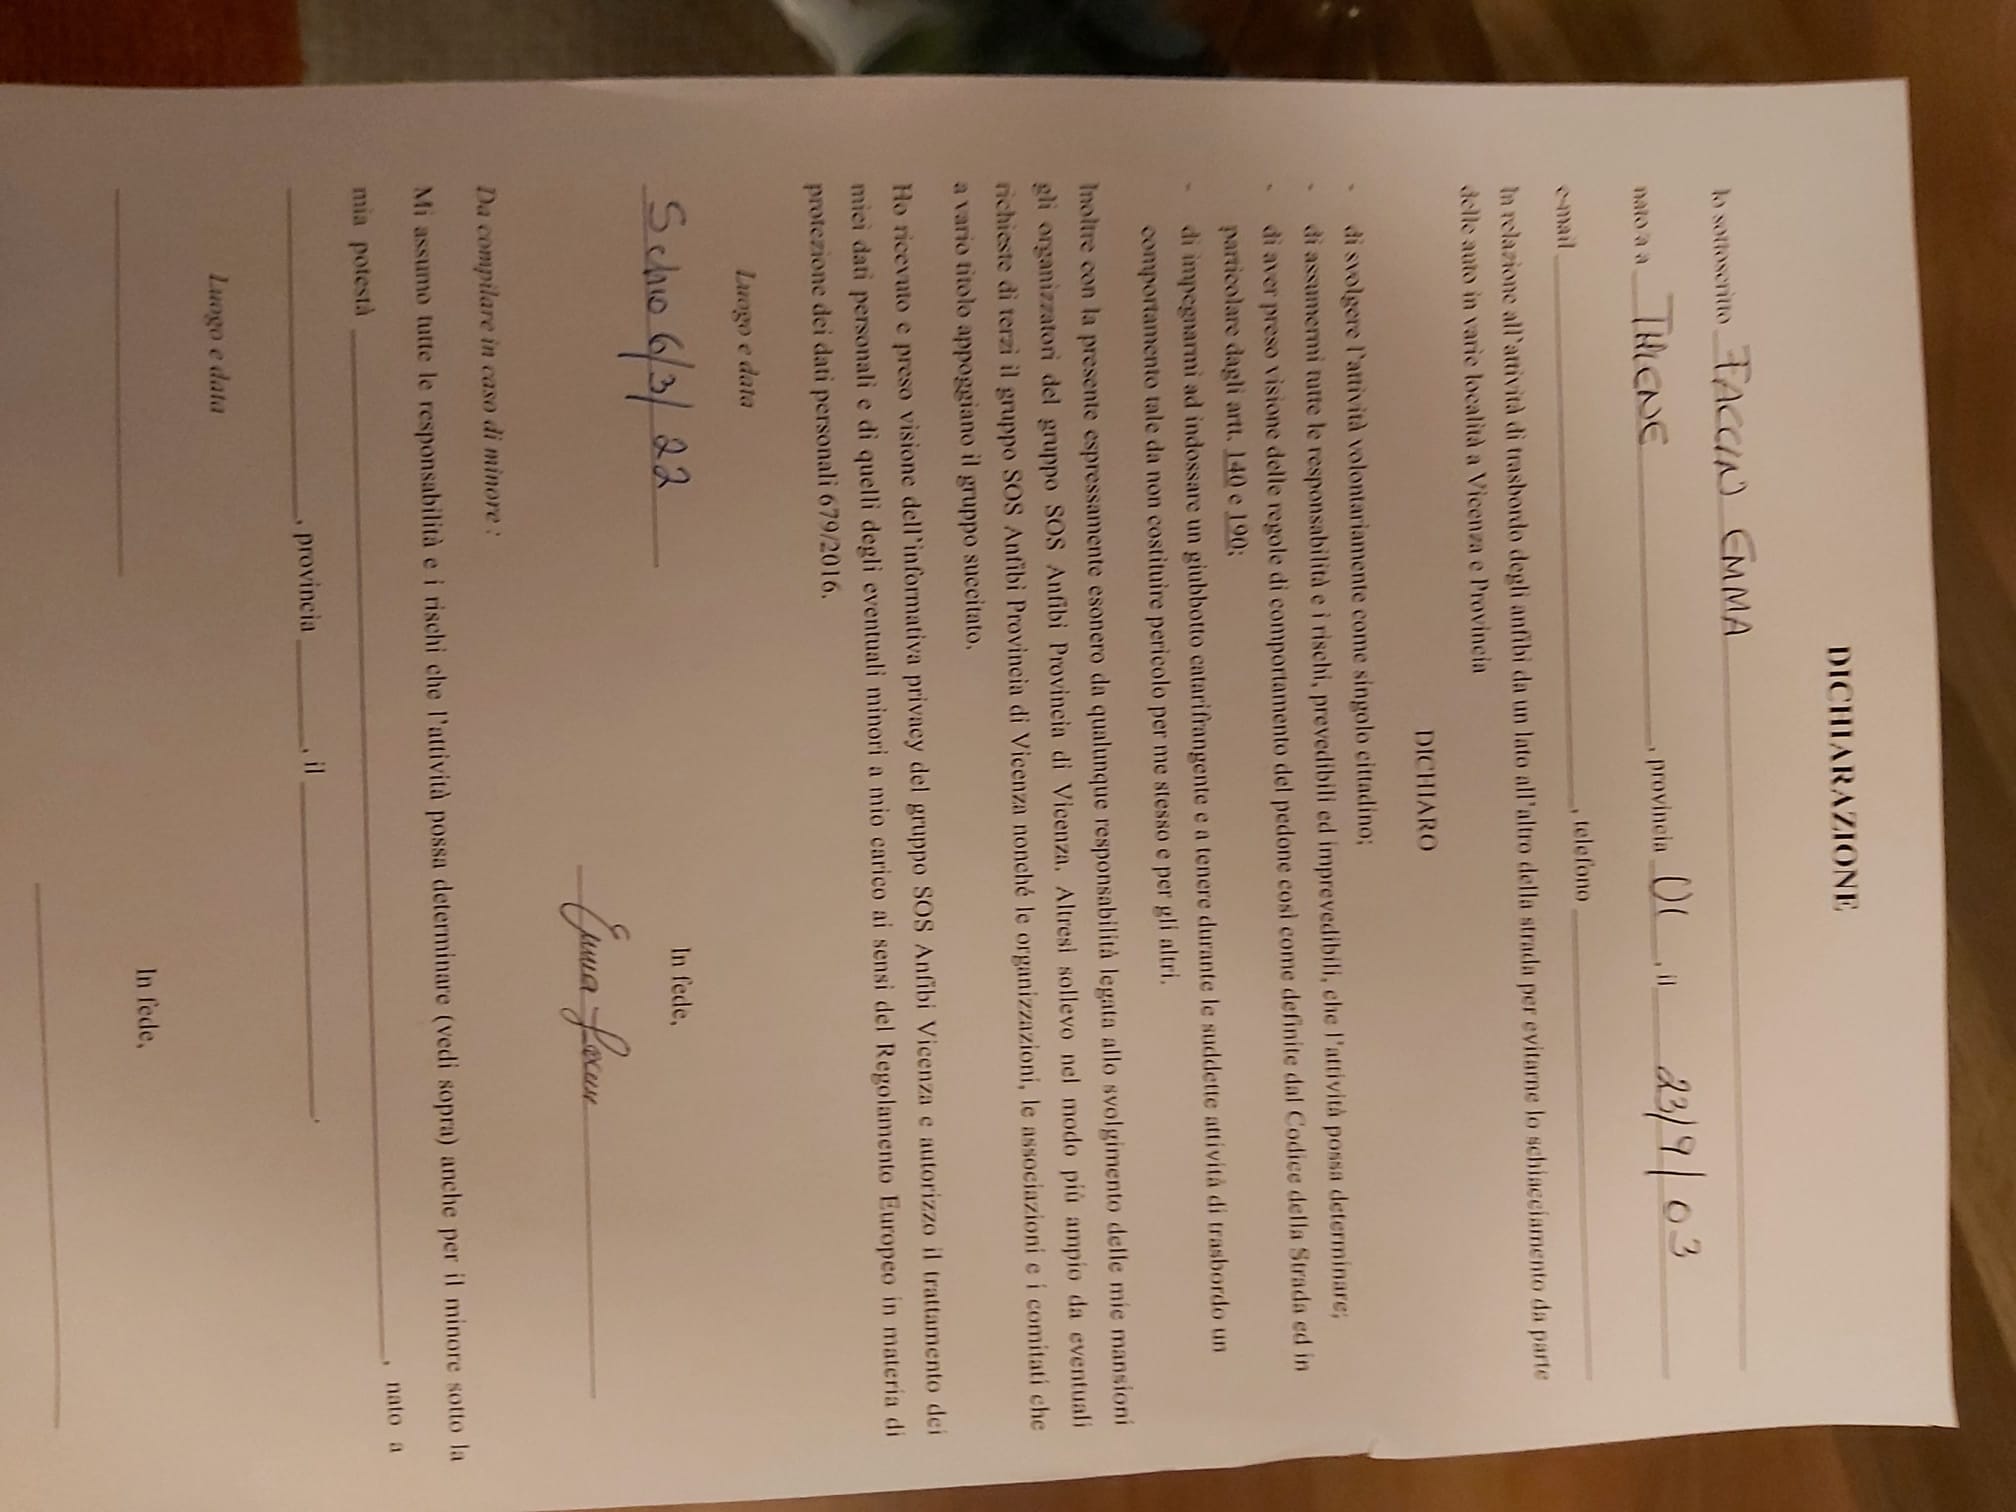 DICHIARAZIONE
Io sottoscritto FACCIN EMMA
nato a a THIENE, provincia VI, il 23/9/03
e-mail, telefono
In relazione all'attività di trasbordo degli anfibi da un lato all'altro della strada per evitarne lo schiacciamento da parte
delle auto in varie località a Vicenza e Provincia
DICHIARO
- di svolgere l'attività volontariamente come singolo cittadino;
- di assumermi tutte le responsabilità e i rischi, prevedibili ed imprevedibili, che l'attività possa determinare;
- di aver preso visione delle regole di comportamento del pedone così come definite dal Codice della Strada ed in
particolare dagli artt. 140 e 190;
- di impegnarmi ad indossare un giubbotto catarifrangente e a tenere durante le suddette attività di trasbordo un
comportamento tale da non costituire pericolo per me stesso e per gli altri.
Inoltre con la presente espressamente esonero da qualunque responsabilità legata allo svolgimento delle mie mansioni
gli organizzatori del gruppo SOS Anfibi Provincia di Vicenza. Altresì sollevo nel modo più ampio da eventuali
richieste di terzi il gruppo SOS Anfibi Provincia di Vicenza nonché le organizzazioni, le associazioni e i comitati che
a vario titolo appoggiano il gruppo succitato.
Ho ricevuto e preso visione dell'informativa privacy del gruppo SOS Anfibi Vicenza e autorizzo il trattamento dei
miei dati personali e di quelli degli eventuali minori a mio carico ai sensi del Regolamento Europeo in materia di
protezione dei dati personali 679/2016.
Luogo e data
In fede,
Schio 6/3/22
Emma Faccin
Da compilare in caso di minore :
Mi assumo tutte le responsabilità e i rischi che l'attività possa determinare (vedi sopra) anche per il minore sotto la
mia potestà, nato a
, provincia, il.
Luogo e data
In fede,